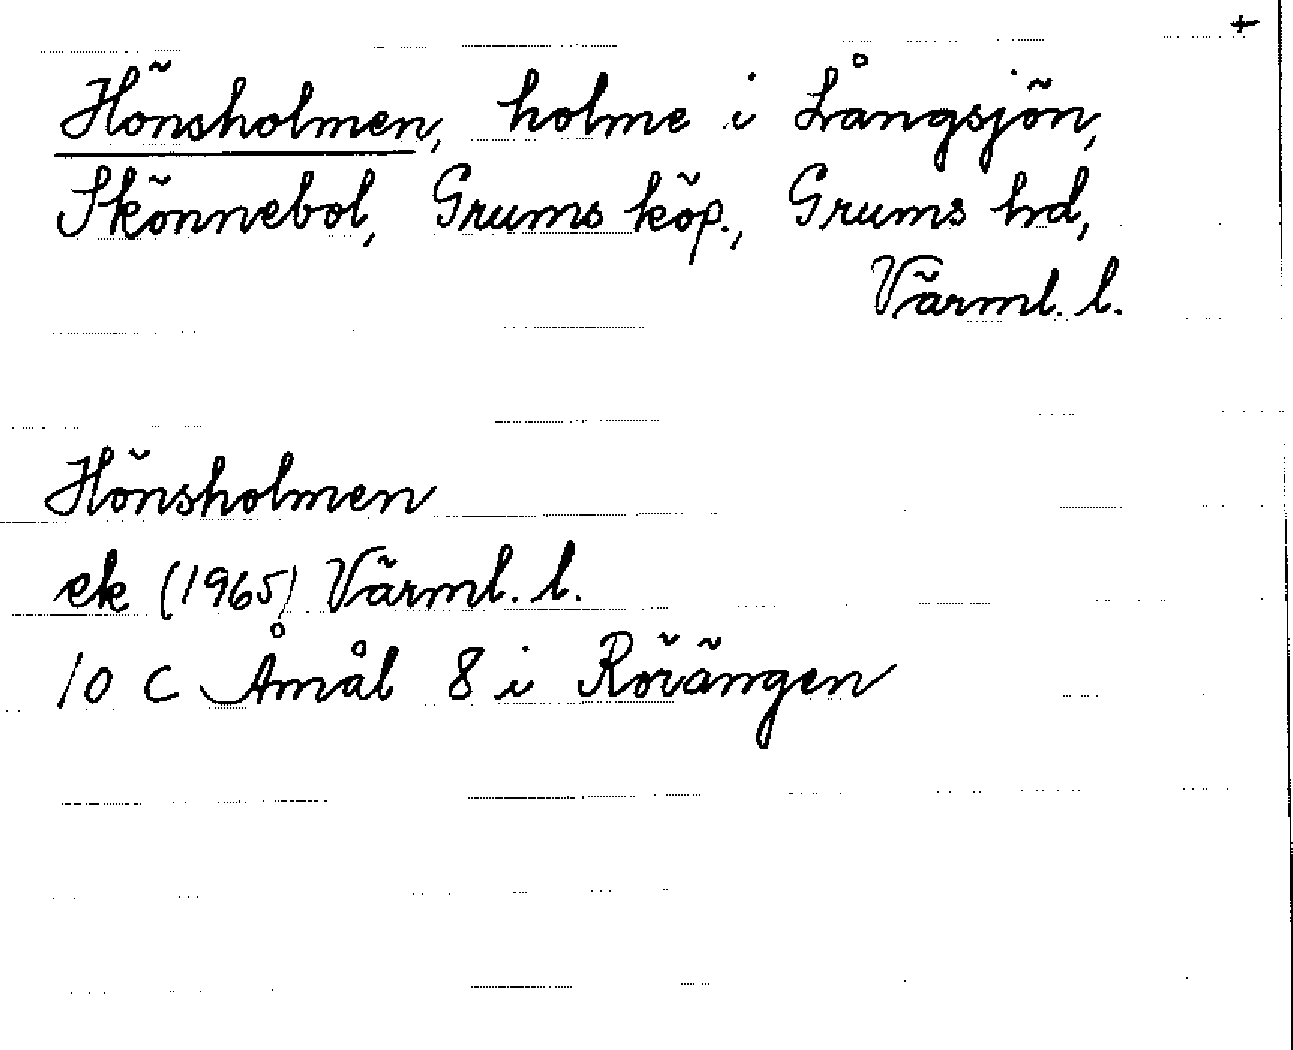 +
Hönsholmen, holme i Långsjön,
Skönnebol, Grums köp., Grums hrd,
Värml. l.
Hönsholmen
ek (1965) Värml. l.
10 C Åmål 8 i Rörängen